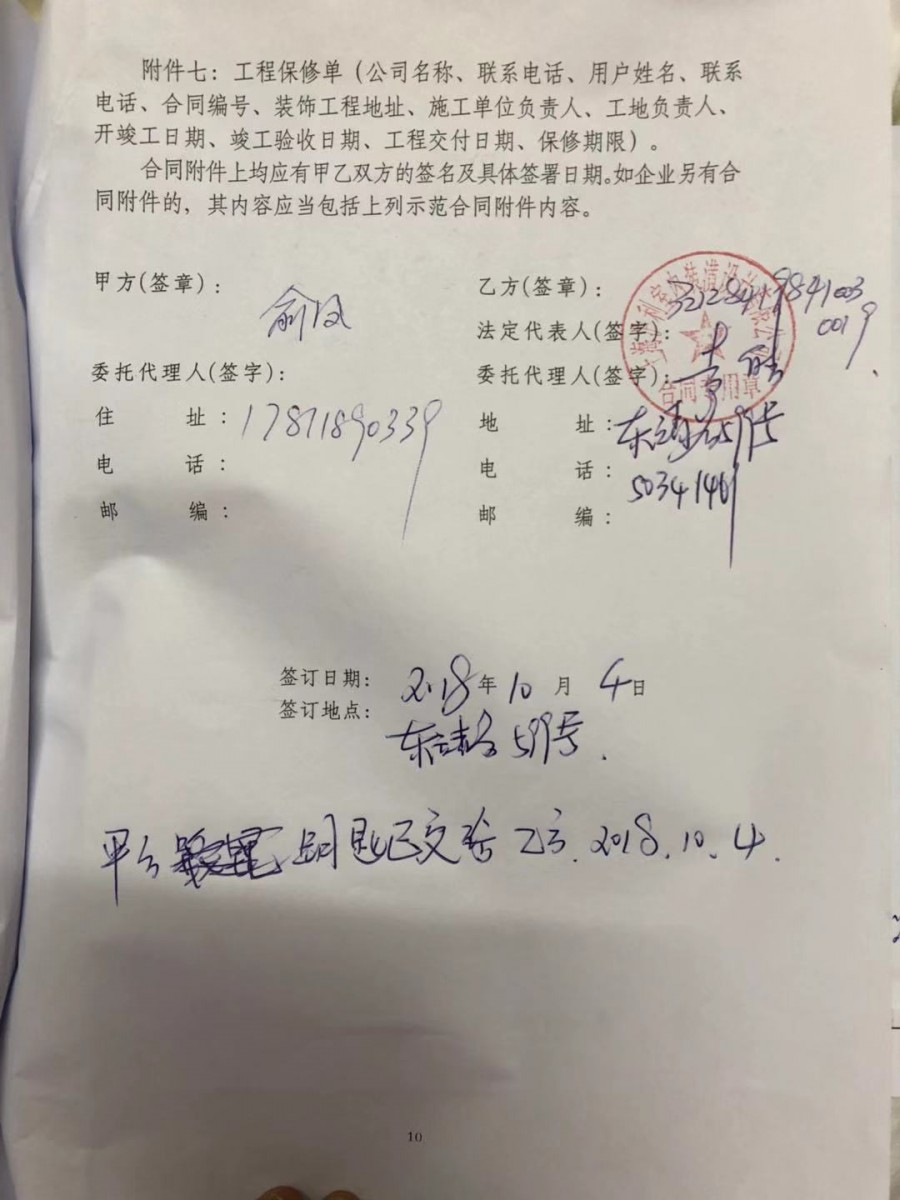 附件七：工程保修单（公司名称、联系电话、用户姓名、联系
电话、合同编号、装饰工程地址、施工单位负责人、工地负责人、
开竣工日期、竣工验收日期、工程交付日期、保修期限）。
合同附件上均应有甲乙双方的签名及具体签署日期。如企业另有合
同附件的，其内容应当包括上列示范合同附件内容。
甲方(签章)：
俞凤
委托代理人(签字)：
住 址：17811890339
电 话：
邮 编：
乙方(签章)：
法定代表人(签字)：
委托代理人(签字)：
合同专用章
地 址：东 路599号
电 话：50341461
邮 编：
签订日期：2018年10月4日
签订地点：
东 路599号.
甲方 钥匙已交给乙方.2018.10.4.
10